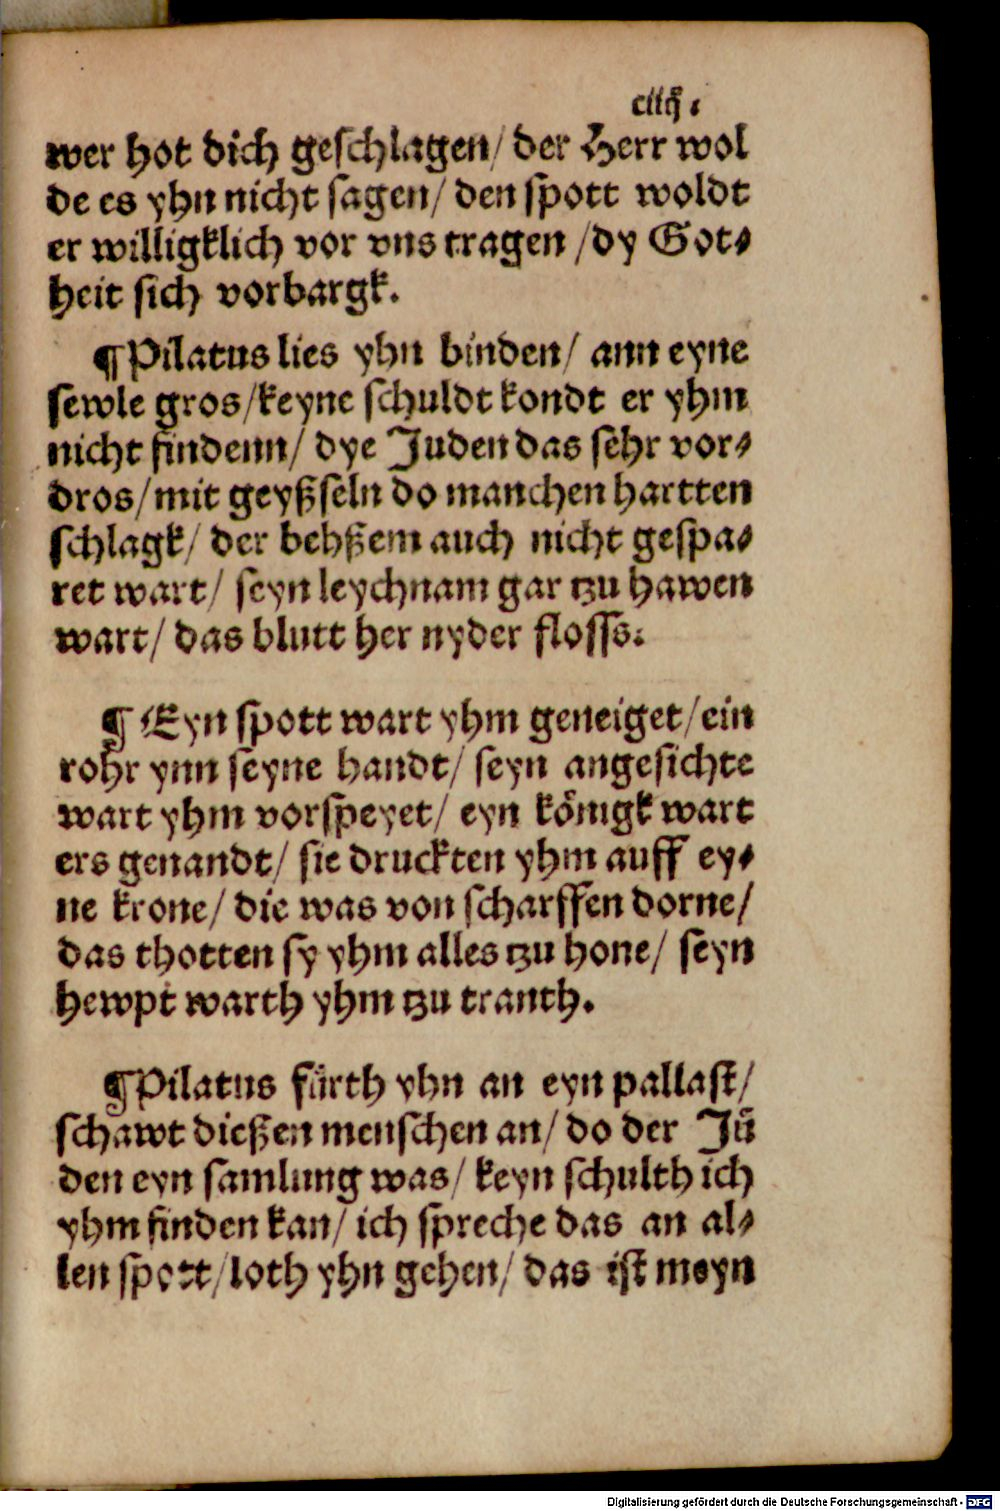 wer hot dich geschlagen/ der Herr wol
de es yhn nicht sagen/ den spott woldt
er willigklich vor vns tragen /dy Got⸗
heit sich vorbargk.
¶Pilatus lies yhn binden/ ann eyne
sewle gros/keyne schuldt kondt er yhm
nicht findenn/ dye Juden das sehr vor⸗
dros/mit geyßseln do manchen hartten
schlagk/ der behßem auch nicht gespa⸗
ret wart/ seyn leychnam gar tzu hawen
wart/ das blutt her nyder flosss.
¶ Eyn spott wart yhm geneiget/ein
rohr ynn seyne handt/ seyn angesichte
wart yhm vorspeyet/ eyn königk wart
ers genandt/ sie druckten yhm auff ey⸗
ne krone/ die was von scharffen dorne/
das thotten sy yhm alles tzu hone/ seyn
hewpt warth yhm tzu tranth.
¶Pilatus fürth yhn an eyn pallast/
schawt dießen menschen an/ do der Jü
den eyn samlung was/ keyn schulth ich
yhm finden kan/ ich spreche das an al⸗
len spott/loth yhn gehen/ das ist meyn
Digitalisierung gefördert durch die Deutsche Forschungsgemeinschaft - DFG